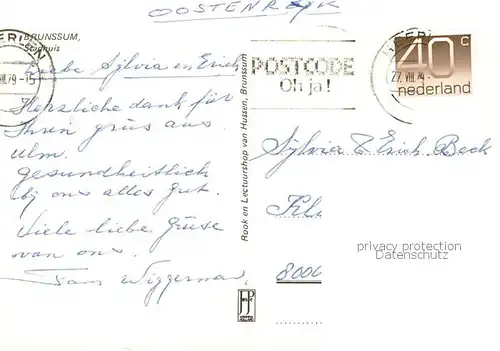 OOSTENRYK
BRUNSSUM,
Stadhuis
Liebe Sylvia en Erich
Herzliche dank für
Ihren grüs aus
ulm.
gesundheitlich
bij ons alles gut.
Viele liebe Grüse
van ons.
Fam Wiggerman,
Rook en Lectuurshop van Hussen, Brunssum
POSTCODE
Oh ja!
27 VIII 79
40 c
nederland
Sylvia & Erich Beck
Kl
8000
privacy protection
Datenschutz